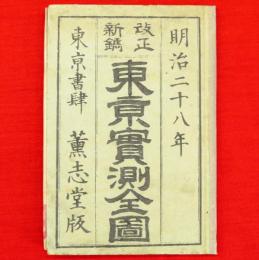 明治二十八年
改正
新鐫
東京實測全圖
東京書肆
薫志堂版